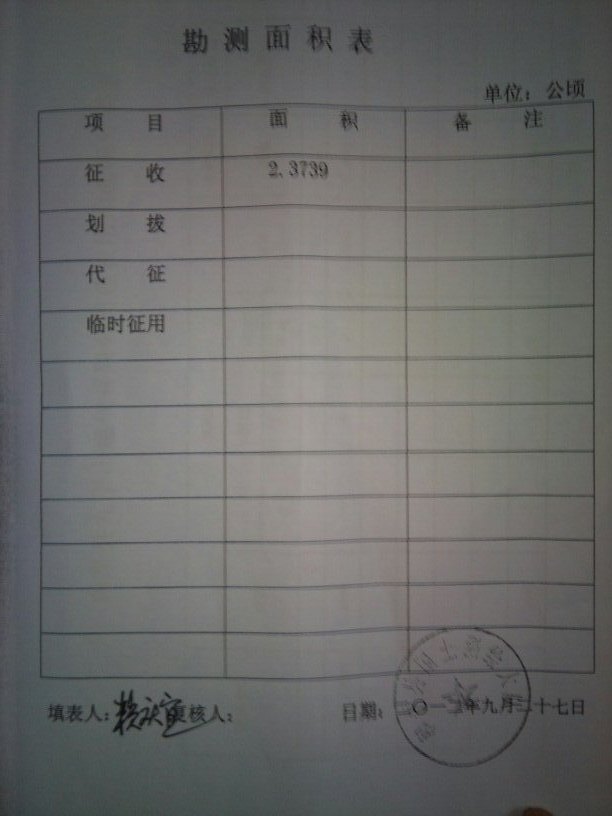 勘测面积表
单位：公顷
项 目 面 积 备 注
征 收 2.3739
划 拨
代 征
临时征用
填表人： 复核人： 日期： 年九月二十七日